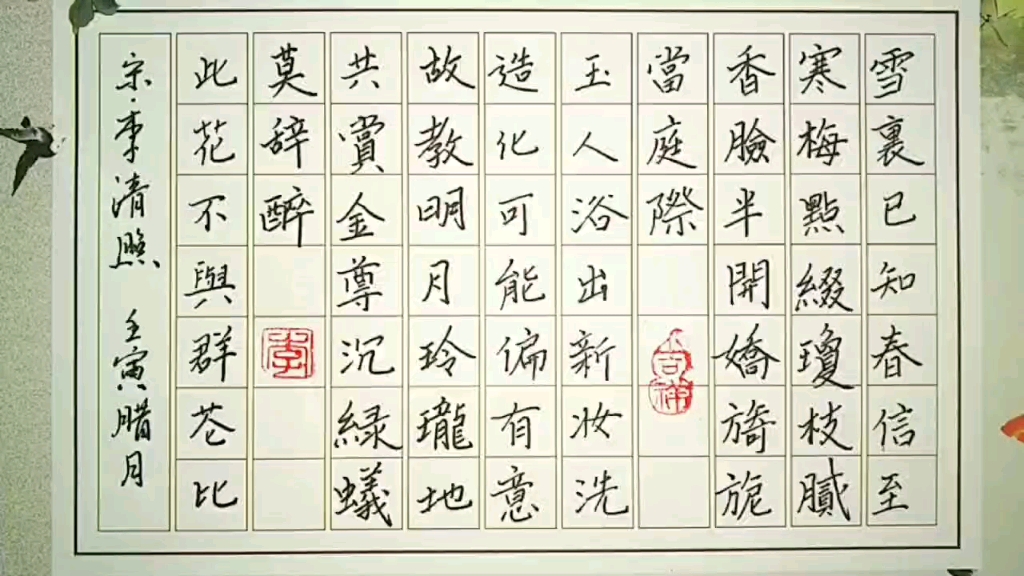 雪裏已知春信至
寒梅點綴瓊枝膩
香臉半開嬌旖旎
當庭際
吉祥
玉人浴出新妆洗
造化可能偏有意
故教明月玲瓏地
共賞金尊沉緑蟻
莫辞醉
此花不與群花比
宋·李清照 壬寅腊月